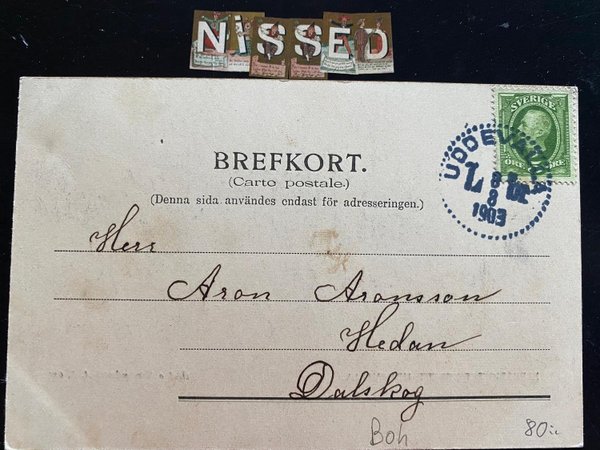 NiSSED
SVERIGE
ÖRE ÖRE
UDDEVALLA
8
1903
BREFKORT.
(Carto postale.)
(Denna sida användes endast för adresseringen.)
Herr
Aron Aronsson
Hedan
Dalskog
Boh
80:-